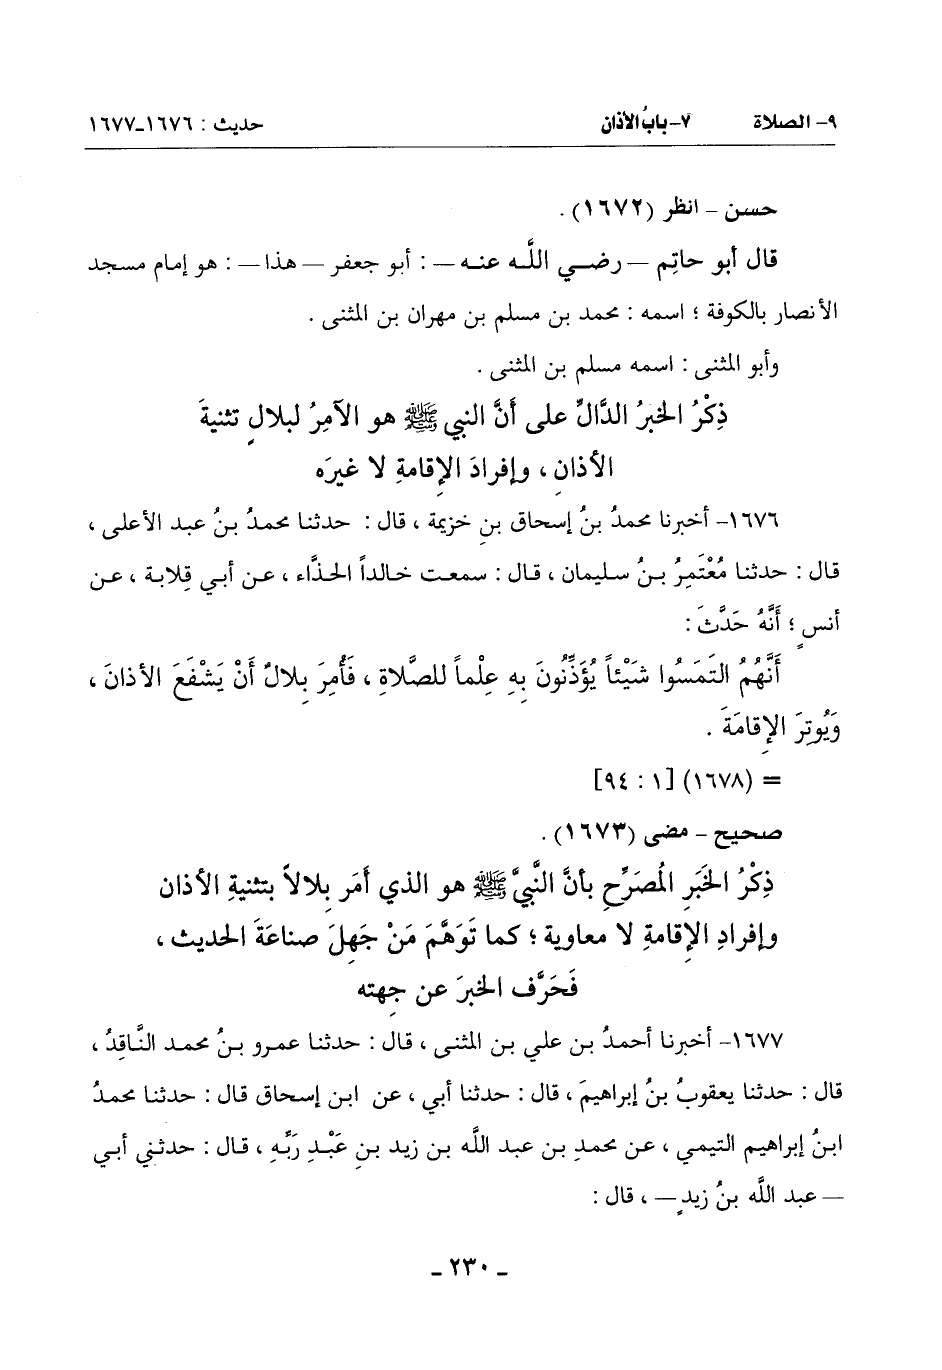 ٩- الصلاة ٧-بابُ الأذان حديث : ١٦٧٦-١٦٧٧
حسن - انظر (١٦٧٢) .
قال أبو حاتِم — رضي اللَّه عنه — : أبو جعفر — هذا — : هو إمام مسجد
الأنصار بالكوفة ؛ اسمه : محمد بن مسلم بن مهران بن المثنى .
وأبو المثنى : اسمه مسلم بن المثنى .
ذِكْرُ الخبرُ الدَّالِّ على أنَّ النبي ﷺ هو الآمِرُ لبلالٍ تثنيةَ
الأذانِ ، وإفرادَ الإقامةِ لا غيرَه
١٦٧٦- أخبرنا محمدُ بنُ إسحاق بنِ خزيمة ، قال : حدثنا محمدُ بنُ عبد الأعلى ،
قال : حدثنا مُعْتَمِرُ بنُ سليمان ، قال : سمعت خالداً الحذَّاء ، عن أبي قِلابة ، عن
أنسٍ ؛ أنَّهُ حَدَّثَ :
أَنَّهُمُ التَمَسُوا شَيْئاً يُؤَذِّنُونَ بِهِ عِلْماً للصَّلاةِ ، فَأُمِرَ بِلالٌ أَنْ يَشْفَعَ الأذانَ ،
وَيُوتِرَ الإِقامَةَ .
= (١٦٧٨) [١ : ٩٤]
صحيح - مضى (١٦٧٣) .
ذِكْرُ الخَبَرِ المُصَرِّحِ بأنَّ النَّبيَّ ﷺ هو الذي أمَر بلالاً بتثنيةِ الأذان
وإفرادِ الإقامةِ لا معاوية ؛ كما تَوَهَّمَ مَنْ جَهِلَ صناعَةَ الحديث ،
فَحَرَّف الخبرَ عن جِهته
١٦٧٧- أخبرنا أحمدُ بن علي بن المثنى ، قال : حدثنا عمرو بنُ محمد النَّاقِدُ ،
قال : حدثنا يعقوبُ بنُ إبراهيمَ ، قال : حدثنا أبي ، عن ابن إسحاق قال : حدثنا محمدُ
ابنُ إبراهيم التيمي ، عن محمدِ بن عبد اللَّه بن زيد بنِ عَبْدِ رَبِّهِ ، قال : حدثني أبي
— عبد اللَّه بنُ زيدٍ — ، قال :
- ٢٣٠ -